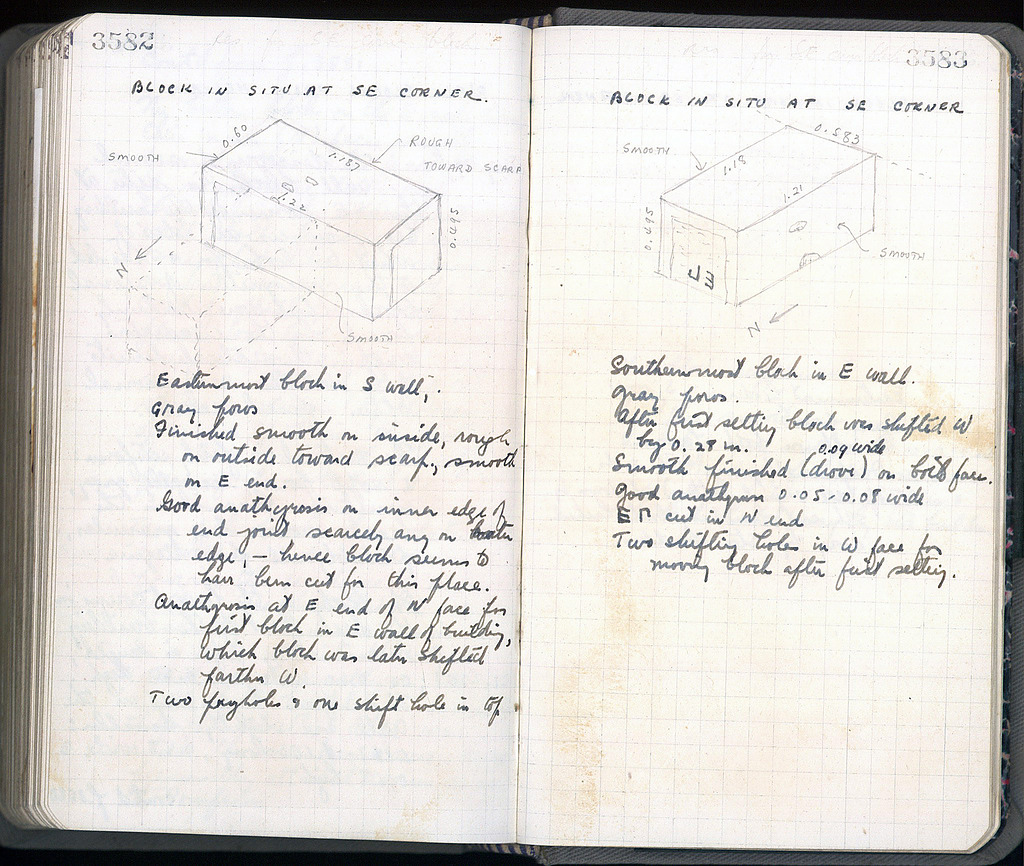 3582
BLOCK IN SITU AT SE CORNER.
0.60
SMOOTH
1.187
ROUGH
TOWARD SCARP
1.22
0.495
N
SMOOTH
Easternmost block in S wall,
Gray poros
Finished smooth on inside, rough
on outside toward scarp, smooth
on E end.
Good anathyrosis on inner edge of
end joint scarcely any on outer
edge, – hence block seems to
have been cut for this place.
Anathyrosis at E end of N face for
first block in E wall of building,
which block was later shifted
farther W
Two pryholes & one shift hole in top
3583
BLOCK IN SITU AT SE CORNER
0.583
SMOOTH
1.19
1.21
0.495
SMOOTH
N
Southernmost block in E wall.
Gray poros.
After first setting block was shifted W
by 0.28 m.
0.09 wide
Smooth finished (drove) on both faces.
Good anathyrosis 0.05-0.08 wide
ΕΓ cut in N end
Two shifting holes in W face for
moving block after first setting.